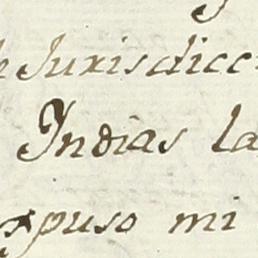 Jurisdicc
Indias la
expuso mi